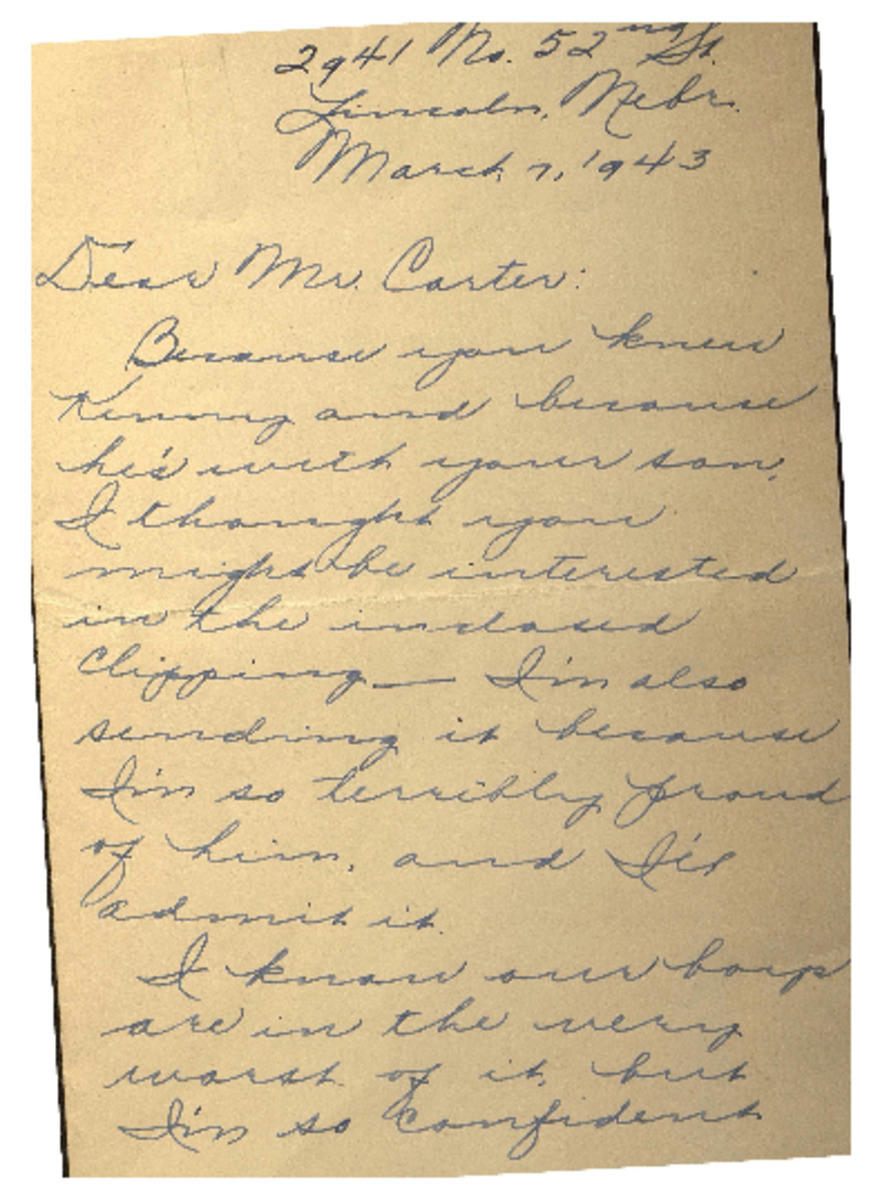 2941 No. 52nd St.
Lincoln, Nebr.
March 7, 1943
Dear Mr. Carter:
Because you knew
Kenny and because
he's with your son,
I thought you
might be interested
in the inclosed
clipping — I'm also
sending it because
I'm so terribly proud
of him, and I'll
admit it.
I know our boys
are in the very
worst of it, but
I'm so confident